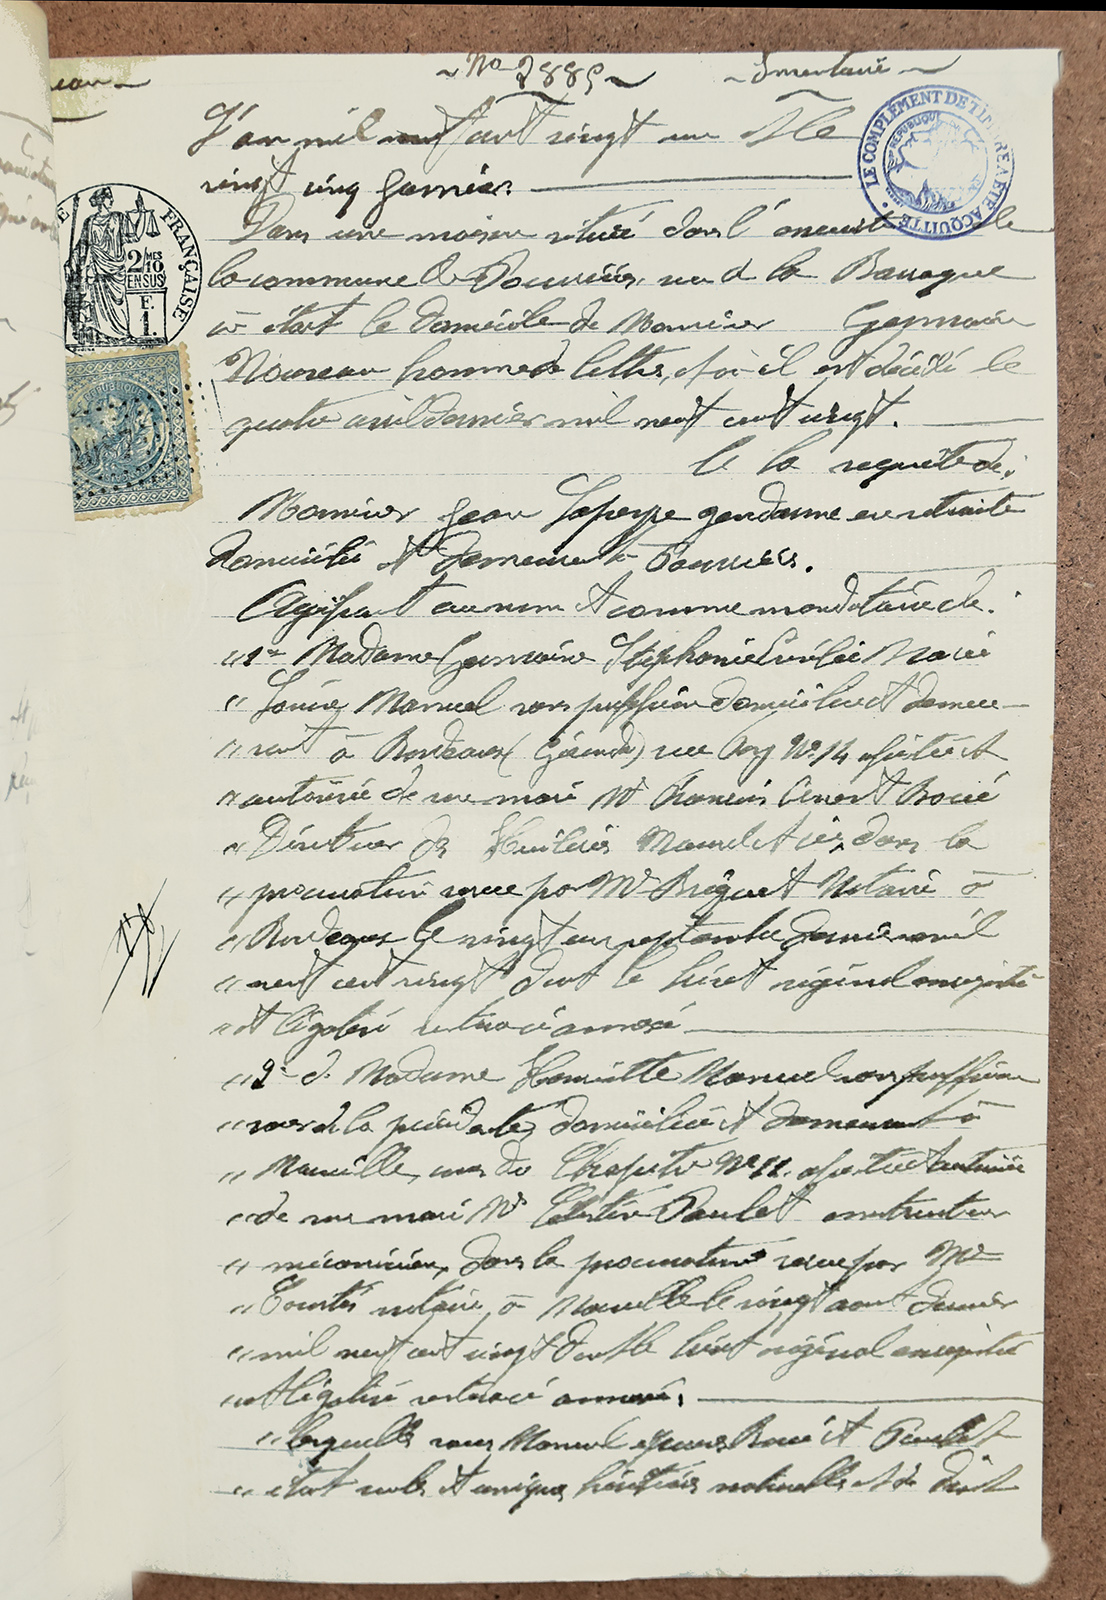 Nº 2885 Inventaire
L'an mil neuf cent vingt un et le
vingt cinq Janvier.
Dans une maison située dans l'enceinte de
la commune de Pourrières, rue de la Bourgue
où était le domicile de Monsieur Germain
Nouveau homme de lettres, et où il est décédé le
quatre avril dernier mil neuf cent vingt.
A la requête de:
Monsieur Jean Lapeyre gendarme en retraite
domicilié et demeurant à Pourrières.
Agissant au nom et comme mandataire de:
"1º Madame Germaine Stéphanie Marie
" Louise Manuel sans profession domiciliée et demeu-
" rant à Bordeaux (Gironde) rue Nº 14 assistée et
" autorisée de son mari Mr François Boué
" Directeur des Huileries Maurel et Cie, dans la
" procuration reçue par Me Notaire à
" Bordeaux le vingt un septembre dernier mil
" neuf cent vingt dont le brevet original enregistré
" et légalisé est ci annexé
" 2º de Madame Henriette Manuel sans profession
" soeur de la précédente, domiciliée et demeurant à
" Marseille, rue du Chapitre Nº 11. assistée et autorisée
" de son mari Mr Célestin Paulet constructeur
" mécanicien, dans la procuration reçue par Me
" notaire, à Marseille le vingt août dernier
" mil neuf cent vingt dont le brevet original enregistré
" et légalisé est ci annexé.
" Lesquelles soeurs Manuel épouses Boué et Paulet
" étant seules et uniques héritières naturelles et de droit
LE COMPLÉMENT DE TIMBRE A ÉTÉ ACQUITTÉ
RÉPUBLIQUE
FRANÇAISE
2/10MES
EN SUS
F.
1.